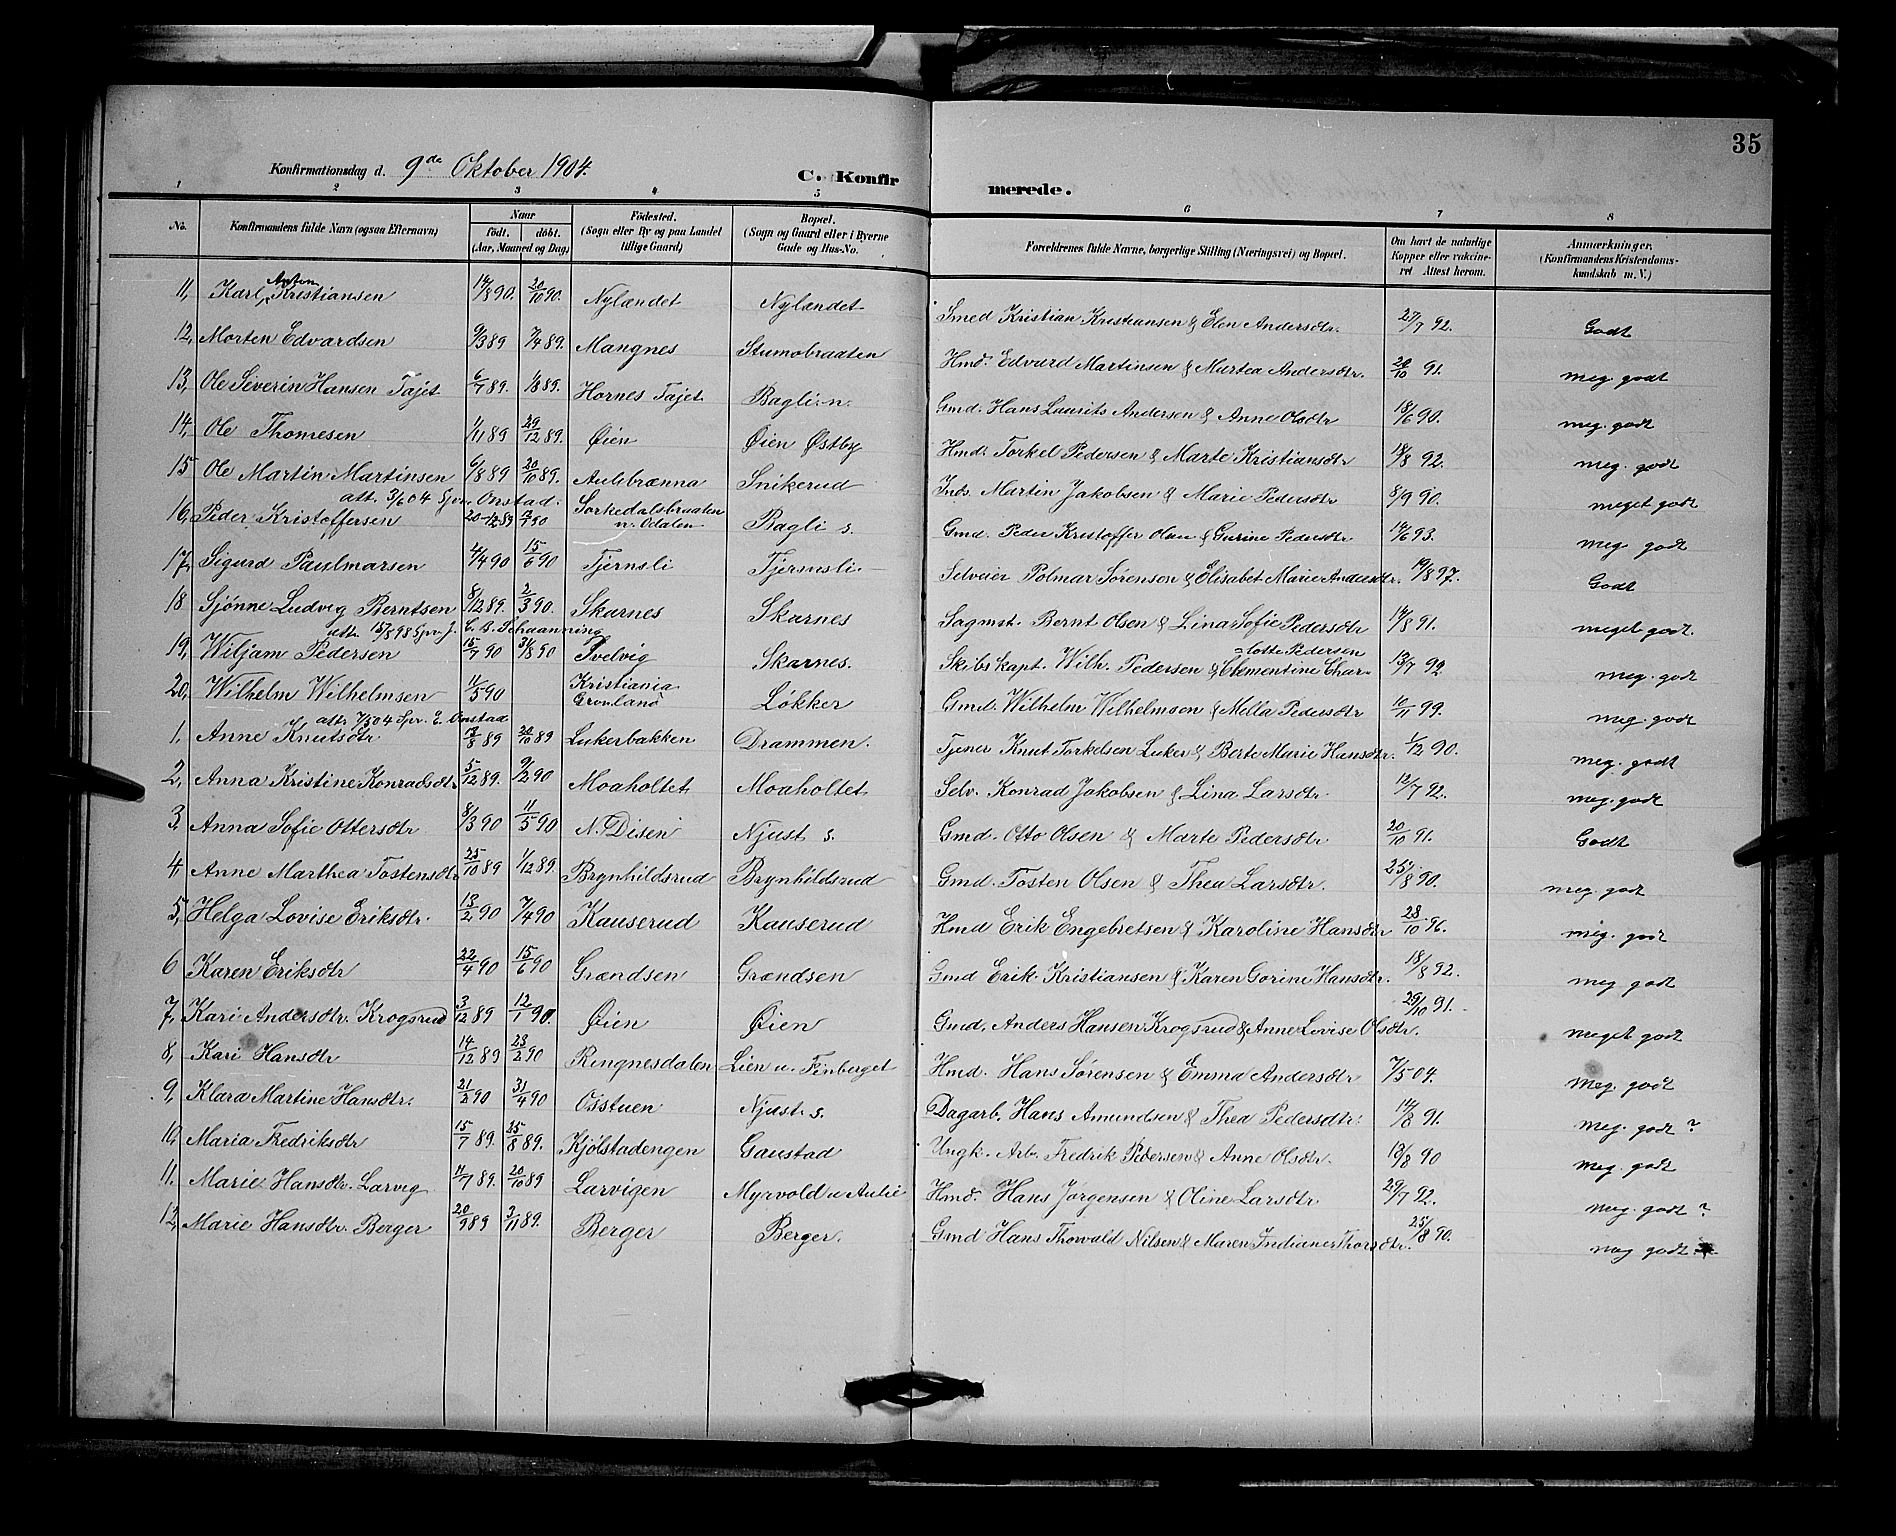 35
Konfirmationsdag d. 9de Oktober 1904.
C. Konfirmerede.
1 2 3 4 5 6 7 8
No. Konfirmandens fulde Navn (ogsaa Efternavn) Naar født. døbt. (Aar, Maaned og Dag) Födested. (Sogn eller By og paa Landet tillige Gaard) Bopæl. (Sogn og Gaard eller i Byerne Gade og Hus-No. Forældrenes fulde Navne, borgerlige Stilling (Næringsvei) og Bopæl. Om havt de naturlige Kopper eller vaccineret Attest herom. Anmærkninger. (Konfirmandens Kristendomskundskab m. V.)
11, Karl Anton Kristiansen 14/8 90. 20/10 90. Nylændet Nylændet Smed Kristian Kristiansen & Elen Andersdtr. 27/7 92. Godt
12, Morten Edvardsen 9/3 89 7/4 89. Mangnes Stumobraaten Hmd. Edvard Martinsen & Martea Andersdtr. 20/10 91. meg. godt
13, Ole Severin Hansen Tajet 6/7 89. 1/8 89. Hornes Tajet Bagli n. Gmd. Hans Laurits Andersen & Anne Olsdtr 18/6 90. meg. godt
14, Ole Thomesen 1/11 89 29/12 89. Øien Øien Østby Hmd. Torkel Pedersen & Marte Kristiansdtr 18/8 92. meg. godt
15 Ole Martin Martinsen 6/8 89 20/10 89. Aulibrænna Snikerud Inds. Martin Jakobsen & Marie Pedersdtr 8/9 90. meget godt
att. 3/6 04 Spr. Onstad.
16, Peder Kristoffersen 20-12 89 12/1 90 Sorkedalsbraaten n. Odalen Bagli s. Gmd. Peder Kristoffer Olsen & Gurine Pedersdtr 14/6 93. meg godt
17, Sigurd Paulmarsen 4/4 90 15/6 90 Tjernsli Tjernsli Selveier Polmar Sørensen & Elisabet Marie Andersdtr. 19/8 97. Godt
18 Sjønne Ludvig Berntsen 8/12 89. 2/3 90. Skarnes Skarnes Sagmst. Bernt Olsen & Lina Sofie Pedersdtr 17/8 91. meget godt.
att. 15/8 98 Spr. J. C. B. Schaanning
19, Wiljam Pedersen 15/7 90 31/8 90 Svelvig Skarnes. Skibskapt. Wilh. Pedersen & Clementine Char=lotte Pedersen 13/7 92 meg. godt
20, Wilhelm Wilhelmsen 11/5 90 Kristiania Grønland Løkker Gmd. Wilhelm Wilhelmsen & Mella Pedersdtr 10/11 99. meg. godt
att. 7/5 04 Spr. E. Onstad
1, Anne Knutsdtr 13/8 89 20/10 89 Lukerbakken Drammen. Tjener Knut Torkelsen Luker & Berte Marie Hansdtr. 1/12 90. meg. godt
2, Anna Kristine Konradsdtr 5/12 89. 9/2 90 Moaholtet Moaholtet Selv. Konrad Jakobsen & Lina Larsdtr 12/7 92. meg. godt
3, Anna Sofie Ottersdtr 8/3 90 11/5 90 N. Disen Njust s. Gmd. Otto Olsen & Marte Pedersdtr 20/10 91. Godt
4, Anne Marthea Tostensdtr 25/10 89 1/12 89. Brynhildsrud Brynhildsrud Gmd. Tosten Olsen & Thea Larsdtr. 25/8 90. meg. godt
5, Helga Lovise Eriksdtr. 13/2 90 7/4 90 Kauserud Kauserud Hmd Erik Engebretsen & Karoline Hansdtr 28/10 96. meg. godt
6 Karen Eriksdtr 22/4 90 15/6 90 Grændsen Grændsen Gmd Erik Kristiansen & Karen Gorine Hansdtr. 18/8 92. meg godt
7, Kari Andersdtr. Krogsrud 3/12 89 12/1 90. Øien Øien Gmd. Anders Hansen Krogsrud & Anne Lovise Olsdtr. 29/10 91. meget godt
8, Kari Hansdtr 14/12 89 23/2 90 Ringnesdalen Lien u. Finberget Hmd. Hans Sørensen & Emma Andersdtr 7/5 04. meg. godt
9, Klara Martine Hansdtr. 21/2 90 31/4 90 Osstuen Njust s. Dagarb. Hans Amundsen & Thea Pedersdtr. 14/8 91. meg. godt?
10, Maria Fredriksdtr 15/7 89. 25/8 89. Kjølstadengen Gaustad Ungk. Arb. Fredrik Pedersen & Anne Olsdtr. 18/8 90 meg. godt
11. Marie Hansdtr. Larvig 11/7 89. 20/10 89 Larvigen Myrvold u Aulie Hmd. Hans Jørgensen & Oline Larsdtr 29/7 92. meg. godt?
12, Marie Hansdtr. Berger 20/9 89 3/11 89. Berger Berger. Gmd Hans Thorvald Nilsen & Maren Indianer Thorsdtr. 25/8 90. meg godt.